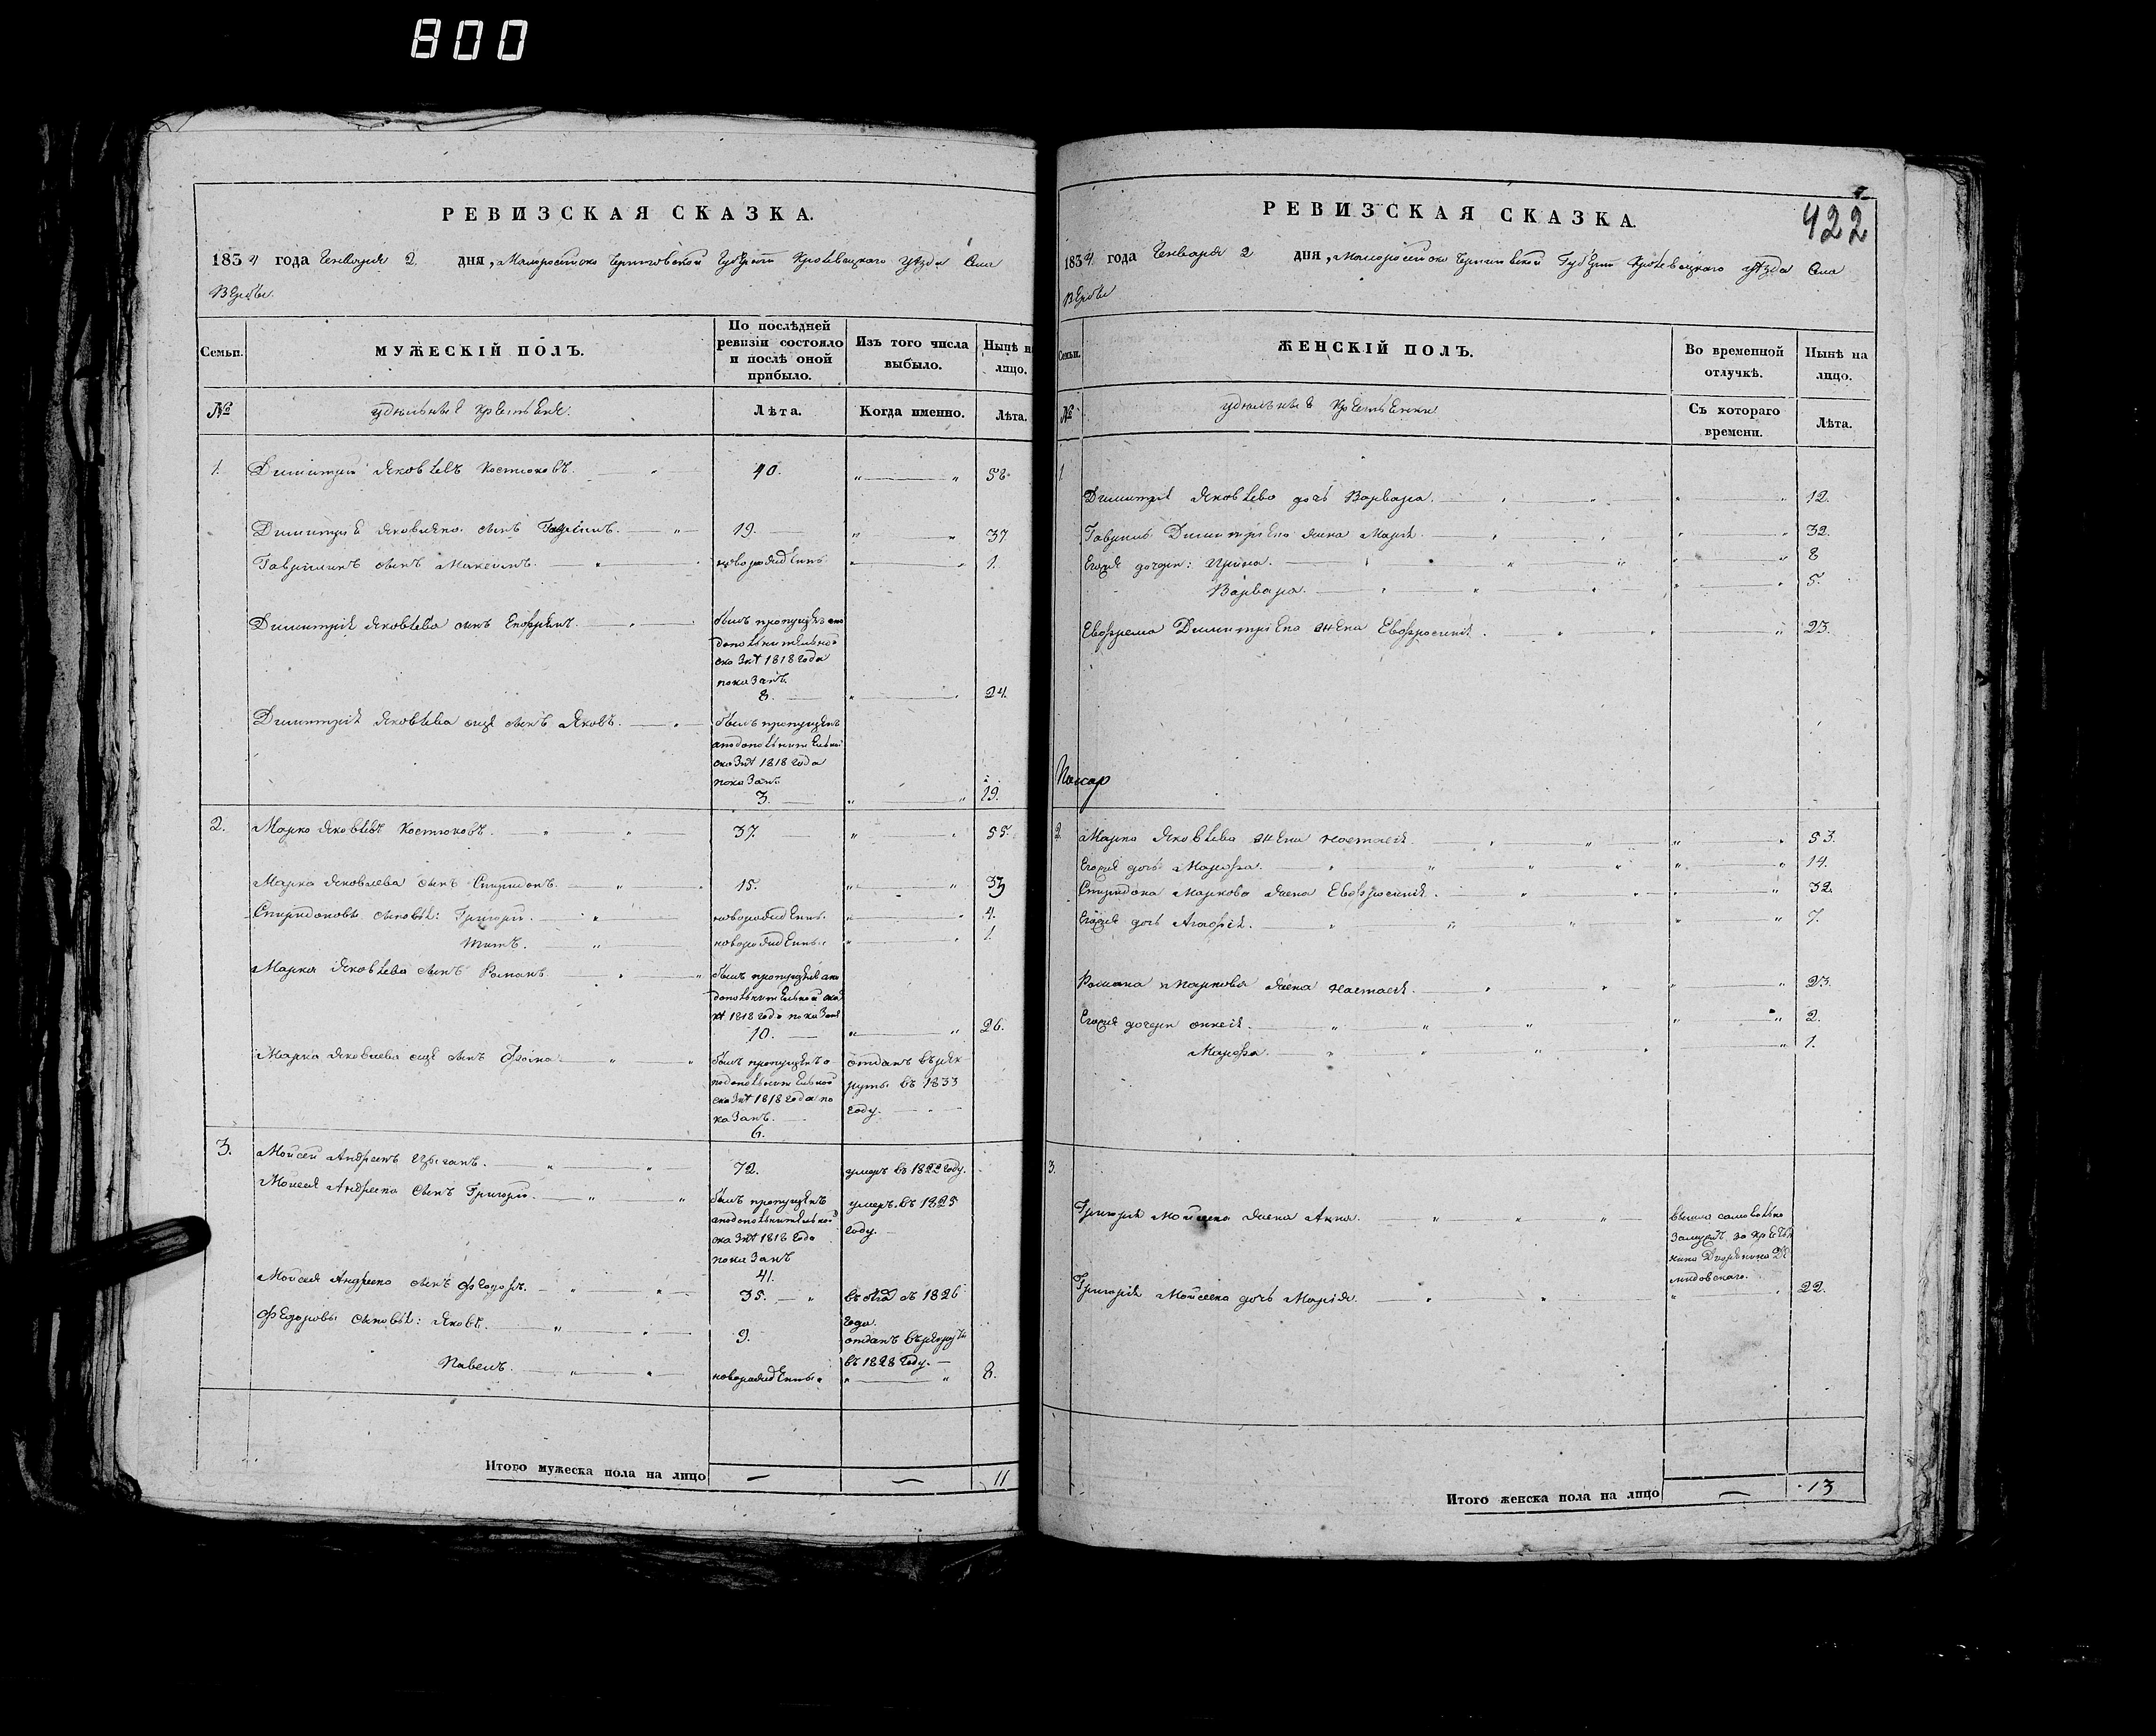 800
РЕВИЗСКАЯ СКАЗКА.
1834 года Генваря 2 дня, Малоросійско Черниговской Губерніи Кролевецкаго уѣзда Села
Вербы
Семьи.
МУЖЕСКІЙ ПОЛЪ.
По послѣдней
ревизіи состояло
и послѣ оной
прибыло.
Изъ того числа
выбыло.
Нынѣ на
лицо.
№
удѣльные крестьяне.
Лѣта.
Когда именно.
Лѣта.
1. Димитрий Яковлевъ Костюковъ. 40. 58
Димитрия Яковлева сынъ Гавріилъ. 19. 37
Гавріиловъ сынъ Максимъ. новорожденны 1.
Димитрія Яковлева сынъ Евфремъ. былъ пропущенъ а по
дополнительной
сказкѣ 1818 года
показанъ.
8. 24.
Димитрія Яковлева еще сынъ Яковъ. былъ пропущенъ
а по дополнительной
сказкѣ 1818 года
показанъ
3. 19.
2. Марко Яковлевъ Костюковъ. 37. 55.
Марка Яковлева сынъ Спиридонъ. 15. 33
Спиридоновы сыновья: Григори. новорожденны. 4.
Титъ. новорожденны 1.
Марка Яковлева сынъ Романъ. былъ пропущенъ а по
дополнительной сказ
кѣ 1818 года показанъ
10. 26.
Марка Яковлева еще сынъ Фома былъ пропущенъ а
по дополнительной
сказкѣ 1818 года по
казанъ.
6.
отданъ въ рек
руты въ 1833
году.
3. Мойсей Андреевъ Цыганъ. 72. умеръ въ 1822 году.
Моисея Андреева сынъ Григори. былъ пропущенъ
а по дополнительной
сказкѣ 1818 года
показанъ
41.
умеръ въ 1825
году.
Мойсея Андреева сынъ Федоръ. 35. въ съ 1826
года.
Федоровы сыновья: Яковъ. 9. отданъ въ рекруты
въ 1828 году.
Павелъ. новорожденны. 8.
Итого мужеска пола на лицо 11
РЕВИЗСКАЯ СКАЗКА.
422
1834 года Генваря 2 дня, Малоросійско Черниговской Губерніи Кролевецкаго уѣзда Села
Вербы
Семьи.
ЖЕНСКІЙ ПОЛЪ.
Во временной
отлучкѣ.
Нынѣ на
лицо.
№
удѣльные крестьянки
Съ котораго
времени.
Лѣта.
1.
Димитрія Яковлева дочь Варвара. 12.
Гавриила Димитріева жена Марія. 32.
Егоже дочери: Ирина. 8
Варвара. 5.
Евофрема Димитріева жена Евофросинія. 23.
2. Марка Яковлева жена Настасія. 53.
Егоже дочь Марофа. 14.
Спиридона Маркова жена Евофросинія. 32.
Егоже дочь Агафія. 7.
Романа Маркова жена Настасія. 23.
Егоже дочери 2.
Марофа. 1.
3.
Григорія Мойсеева жена Анна. вышла самовольно
замужъ за крестья
нина Дворянина
Григорія Мойсеева дочь Марія. 22.
Итого женска пола на лицо 13